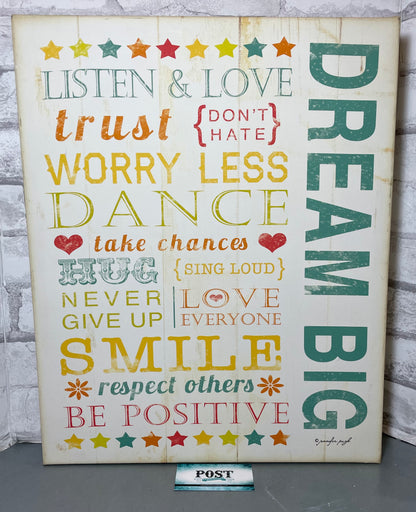 LISTEN & LOVE
trust {DON'T HATE}
WORRY LESS
DANCE
take chances
HUG {SING LOUD}
NEVER GIVE UP
LOVE EVERYONE
SMILE
respect others
BE POSITIVE
DREAM BIG
POST